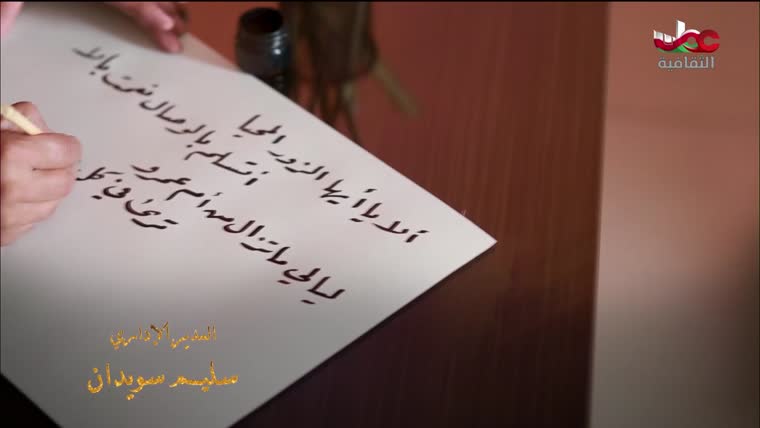 عمان
الثقافية
ألا يا أيها الزور المحيا
أتسلم بالوصال نعمت بالا
ليالي ما تزال من أم عمرو
ترى في
المدير الإداري
سليم سويدان